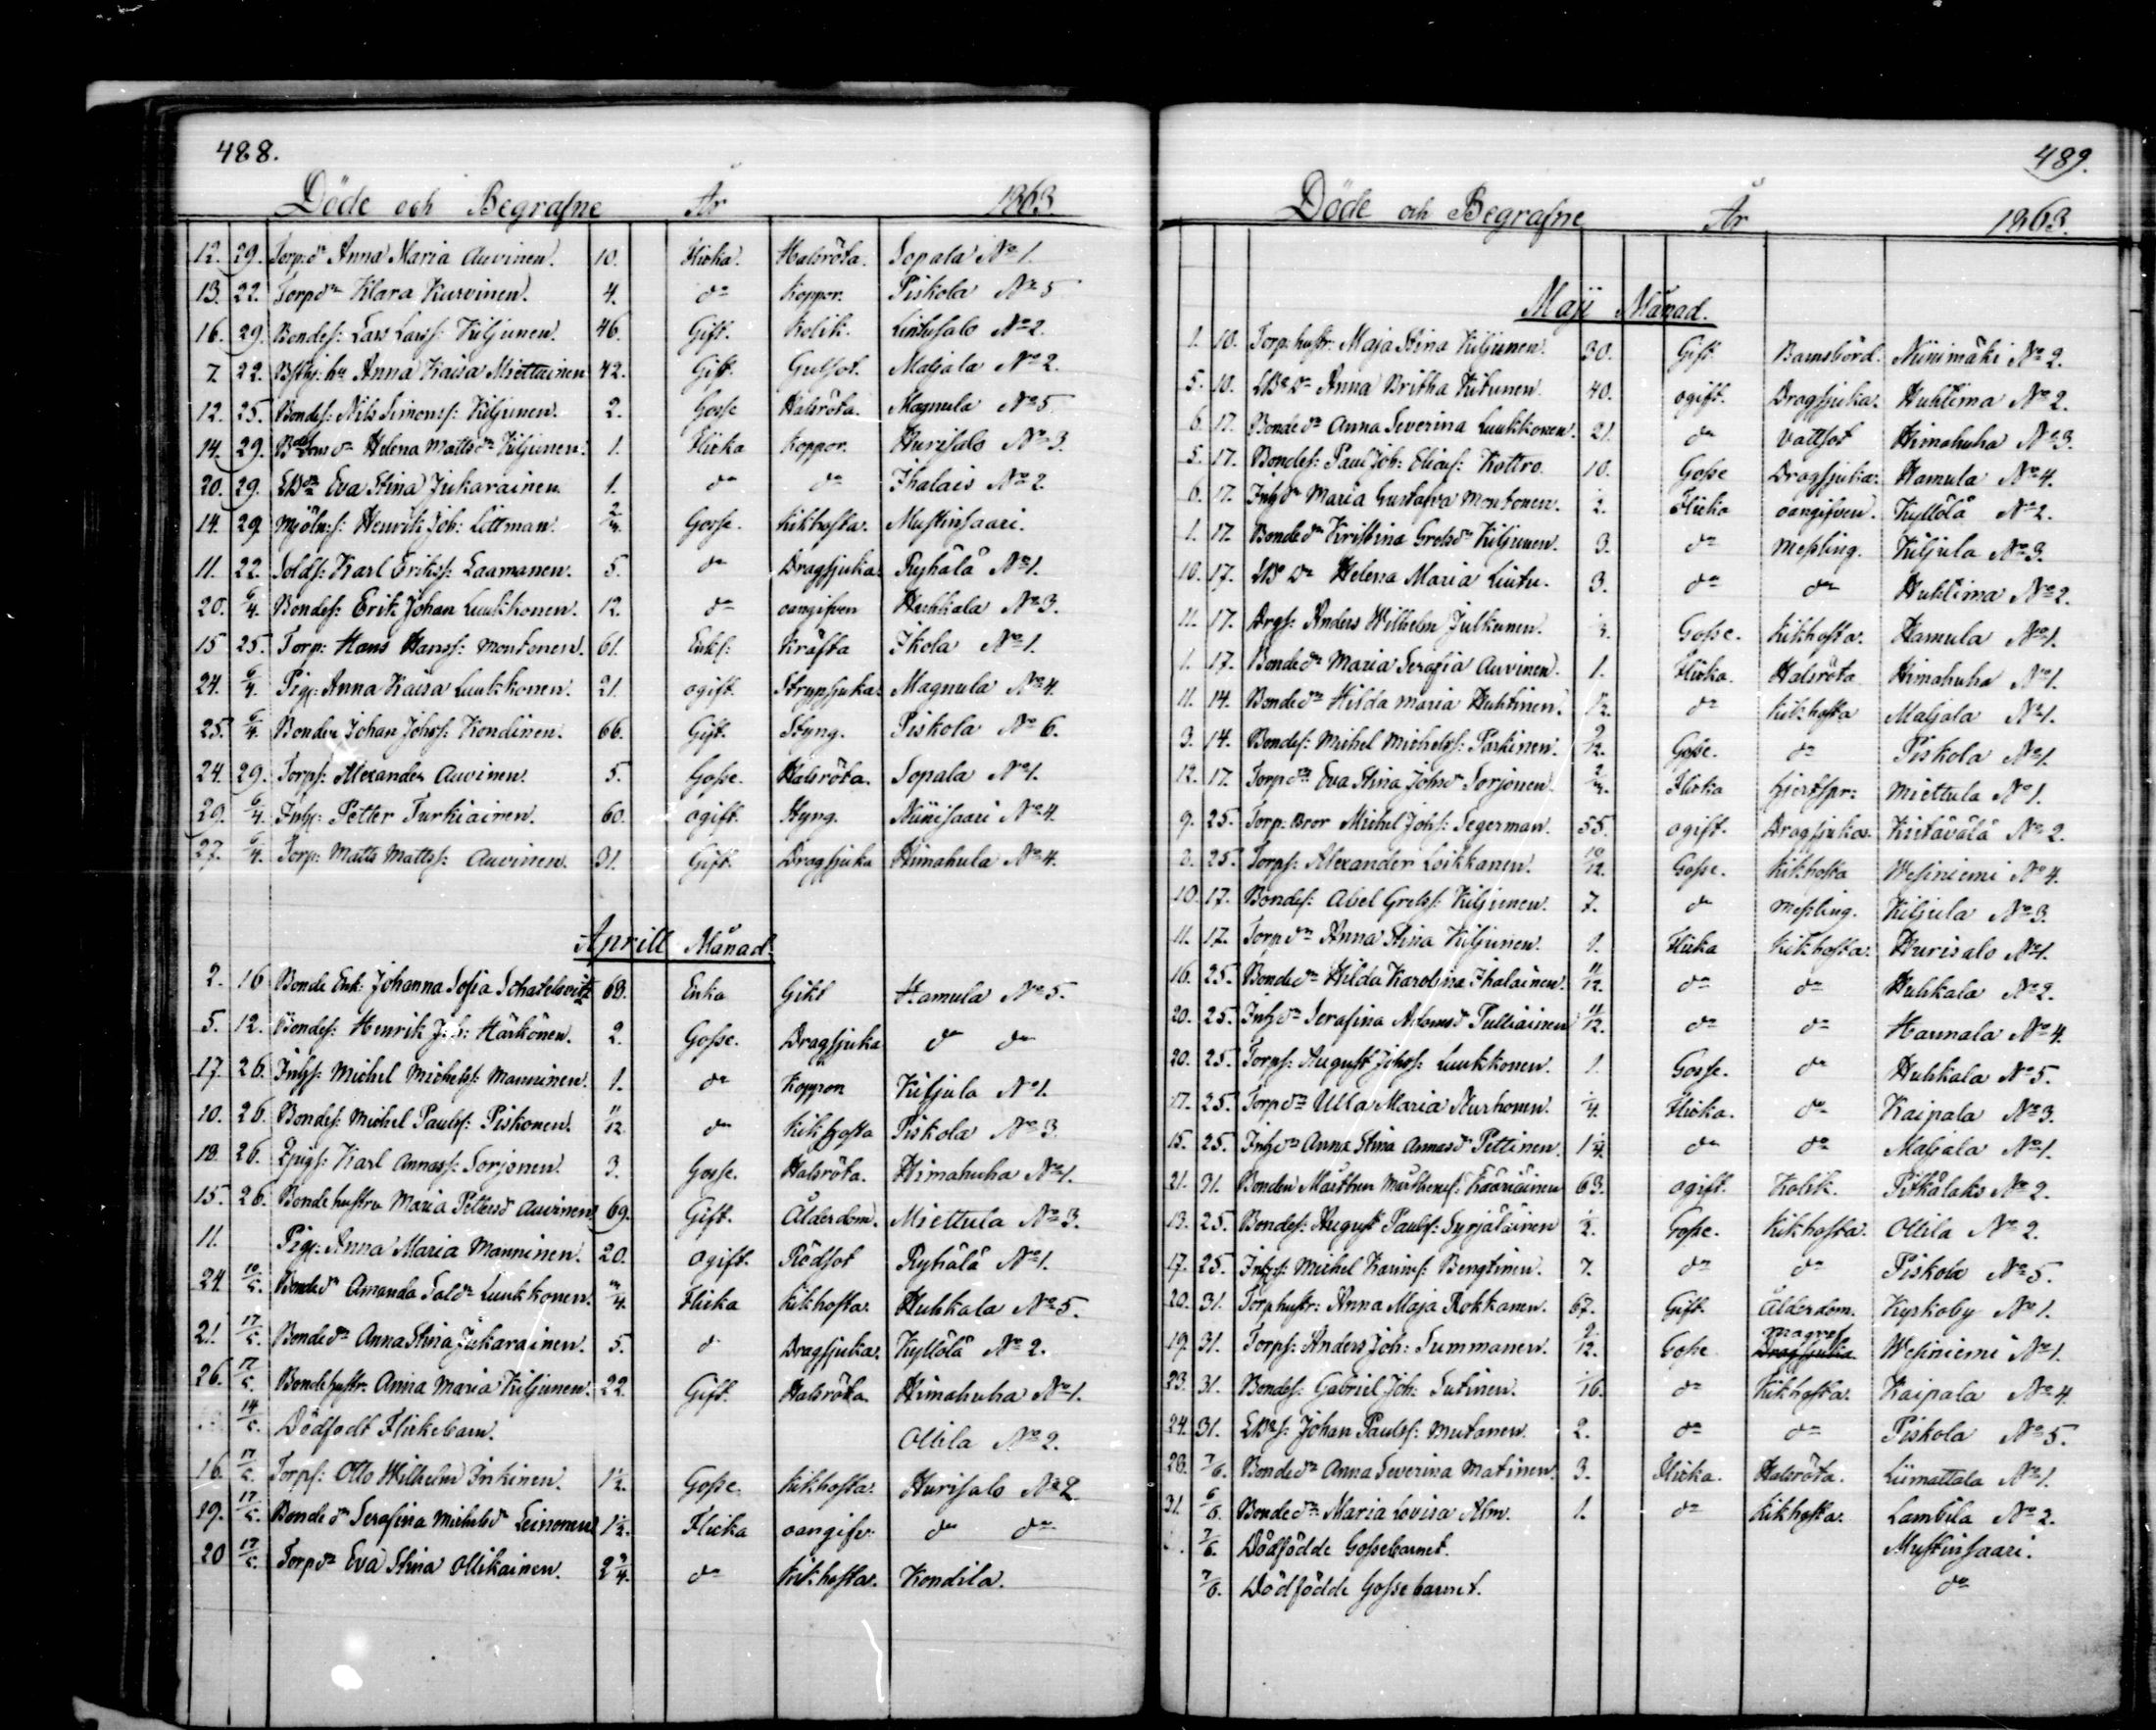 488.
Döde och Begrafne År 1863.
12. 29. Torp: dr Anna Maria Auvinen. 10. Flicka. Halsröta. Sopala No 1.
13. 22. Torp dr Klara Kurvinen. 4. do Koppor. Piskola No 5
16. 29. Bondes: Lars Larss: Kiljunen. 46. Gift. Kolik. Lintusalo No 2.
7. 22. hu Anna Kaisa Miettainen 42. Gift. Gulsot. Maljala No 2.
12. 25. Bondes: Nils Simonss: Kiljunen. 2. Gosse Halsröta. Magnula No 5.
14. 29. dr Helena Matts dr Kiljunen. 1. Flicka Koppor. Hurisalo No 3.
20. 29. Eva Stina Jukarainen. 1. do do Ihalais No 2.
14. 29. Mjöln:s: Henrik Joh: Littman. 2/4. Gosse. Kikhosta. Mustinsaari.
11. 22. Solds: Karl Erikss: Laamanen. 5. do Dragsjuka. Ryhälä No 1.
20. 6/4. Bondes: Erik Johan Luukkonen. 12. do oangifven Huhkala No 3.
15 25. Torp: Hans Hanss: Montonen. 61. Enkl: Kräfta Ikola No 1.
24. 6/4. Pig: Anna Kaisa Luukkonen. 21. ogift. Strypsjuka. Magnula No 4.
25. 6/4. Bonden Johan Johss: Kondinen. 66. Gift. Styng. Piskola No 6.
24. 29. Torps: Alexander Auvinen. 5. Gosse. Halsröta. Sopala No 1.
29. 6/4. Inh: Petter Turkiainen. 60. ogift. Styng. Niinisaari No 4.
27. 6/4. Torp: Matts Mattss: Auvinen. 31. Gift. Dragsjuka Himahula No 4.
Aprill Månad.
2. 16 Bonde Enk: Johanna Sofia 68. Enka Gikt Hamula No 5.
5. 12. Bondes: Henrik Joh: Härkönen. 2. Gosse. Dragsjuka do do
17 26. Inhs: Michel Michelss: Manninen. 1. do Koppor. Kiljula No 1.
10. 26. Bondes: Michel Paulss: Piskonen. 11/12 do Kikhosta Piskola No 3.
18. 26. Karl Annass: Sorjonen. 3. Gosse. Halsröta. Himahuha No 1.
15. 26. Bonde hustru Maria Pettersd Auvinen 69. Gift. Ålderdom. Miettula No 3.
11. Pig: Anna Maria Manninen. 20. Ogift. Rödsot Ryhälä No 1.
24. 10/5. Bonde dr Amanda Luukkonen. 3/4. Flicka Kikhosta. Huhkala No 5.
21. 17/5. Bonde dr Anna Stina Jukarainen. 5. d Dragsjuka. Kyllölä No 2.
26. 17/5. Bondehustr: Anna Maria Kiljunen. 22. Gift. Halsröta. Himahuha No 1.
14/5. Dödfödt Flickebarn. Ollila No 2.
16. 17/5. Torps: Otto Wilhelm Inkinen. 1 1/2. Gosse. Kikhosta. Hurisalo No 2
19. 17/5. Bonde dr Serafina Michels dr Leinonen 1 1/2. Flicka oangifv: do do
20 17/5. Torp dr Eva Stina Ollikainen. 2 3/4. do Kikhosta. Kondila.
489.
Döde och Begrafne År 1863.
Maji Månad.
1. 10. Torp: hustr: Maja Stina Kiljunen. 30. Gift Barnsbörd. Niinimäki No 2.
5. 10. Anna Britha Kutunen. 40. ogift. Dragsjuka. Huhtima No 2.
6. 17. Bonde dr Anna Severina Luukkonen. 21. do Vattsot Himahuha No 3.
5. 17. Bondes: Paul Joh: Eliass: Kottro. 10. Gosse Dragsjuka. Hamula No 4.
6. 17. Inh dr Maria Gustafva Montonen. 1/2. Flicka oangifven. Kyllölä No 2.
1. 17. Bonde dr Kristina Grels dr Kiljunen. 3. do Messling. Kiljula No 3.
10. 17. Helena Maria Lintu. 3. do do Huhtima No 2.
11. 17. Drgs: Anders Wilhelm Julkunen. Gosse. Kikhosta. Hamula No 1.
1. 17. Bonde dr Maria Serafia Auvinen. 1. Flicka. Halsröta Himahuha No 1.
11. 14. Bonde dr Hilda Maria Huhtinen. 1 1/2. do Kikhosta Maljala No 1.
3. 14. Bondes: Michel Michelss: Parkinen. 9/12. Gosse. do Piskola No 1.
12. 17. Torp dr Eva Stina Johsd Sorjonen. 2/4. Flicka hjertspr: Miettula No 1.
9. 25. Torp: Bror Michel Johs: Segerman. 55. ogift. Dragsjuka. Kietävälä No 2.
8. 25. Torps: Alexander Loikkanen. 10/12. Gosse. Kikhosta Wesiniemi No 4.
10. 17. Bondes: Abel Grelss: Kiljunen. 7. do Messling. Kiljula No 3.
11. 17. Torp dr Anna Stina Kiljunen. 1. Flicka Kikhosta. Hurisalo No 1.
16. 25. Bonde dr Hilda Karolina Ihalainen. 11/12. do do Huhkala No 2.
20. 25. Inh dr Serafina Adamsd Tulliainen 11/12. do do Hannala No 4.
20. 25. Torps: August Johss: Luukkonen. 1. Gosse. do Huhkala No 5.
17. 25. Torp dr Ulla Maria Nurhonen. 1/4. Flicka. do Kaipala No 3.
15. 25. Inh dr Anna Stina Annasd Pettinen. 1 1/4. do do Maljala No 1.
21. 31. Bonden Mårthen Mårthenss: Kääriäinen 63. ogift. Kolik. Pitkälaks No 2.
13. 25. Bondes: August Paulss: Surjäläinen 1/2. Gosse. Kikhosta. Ollila No 2.
17. 25. Inhs: Michel Karins: Bengtinen. 7. do do Piskola No 5.
20. 31. Torphustr: Anna Maja Rokkanen. 67. Gift. Ålderdom. Kyrkoby No 1.
19. 31. Torps: Anders Joh: Summanen. 9/12. Gosse Dragsjuka Wesiniemi No 1.
23. 31. Bondes: Gabriel Joh: Sutinen. 1/16. do Kikhosta. Kaipala No 4
24. 31. Johan Paulss: Mutanen. 2. do do Piskola No 5.
28. 7/6. Bonde dr Anna Severina Matinen. 3. Flicka. Halsröta. Liimattala No 1.
31. 6/6. Bonde dr Maria Lovisa Alm. 1. do Kikhosta. Lambila No 2.
7/6. Dödfödde Gossebarnet. Mustinsaari.
7/6. Dödfödde Gossebarnet. do